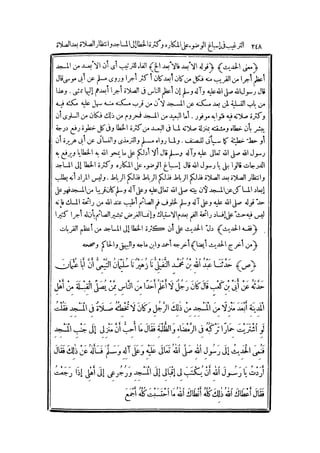 ٢٤٨ الترغيب فى إسباغ الوضوء على المكاره وكثرة الخطا إلى المساجد وانتظار الصلاة بعد الصلاة
﴿معنى الحديث﴾ ﴿قوله الأبعد فالأبعد الخ﴾ الفاء للترتيب أى أن الأبعد من المسجد
أعظم أجرا من القريب منه فكل من كان أبعد كان أكثر أجرا وروى مسلم عن أبى موسى قال
قال رسول الله صلى الله عليه وآله وسلم إن أعظم الناس فى الصلاة أجرا أبعدهم إليها ممشى. وهذا
من باب التسلية لمن بعد مسكنه عن المسجد لأن من قرب مسكنه منه سهل عليه مكثه فيه
وصلاته فيه فثوابه موفور. أما البعيد من المسجد فمحروم من ذلك فكان من السلوى أن
يبشر بأن خطاه ومشقته بمنزلة صلاته لما فى البعد من كثرة الخطا وفى كل خطوة رفع درجة
أو حط خطيئة كما سيأتى للمصنف. ولما رواه مسلم والترمذى والنسائى عن أبى هريرة أن
رسول الله صلى الله تعالى عليه وآله وسلم قال ألا أدلكم على ما يمحو الله به الخطايا ويرفع به
الدرجات قالوا بلى يا رسول الله قال إسباغ الوضوء على المكاره وكثرة الخطا إلى المساجد
وانتظار الصلاة بعد الصلاة فذلكم الرباط فذلكم الرباط فذلكم الرباط. وليس المراد أنه يطلب
إبعاد المساكن عن المسجد لأن بيته صلى الله تعالى عليه وعلى آله وسلم كان قريبا من المسجد فهو على
حد قوله صلى الله عليه وعلى آله وسلم لخلوف فم الصائم أطيب عند الله من رائحة المسك فإنه
ليس فيه حث على إفساد رائحة الفم بعدم الاستياك وإنما الغرض تبشير الصائم بأن له أجرا كثيرا
﴿فقه الحديث﴾ دل الحديث على أن كثرة الخطا إلى المساجد من أعظم القربات
﴿من أخرج الحديث أيضا﴾ أخرجه أحمد وابن ماجه والبيهقى والحاكم وصححه
﴿ص﴾ حَدَّثَنَا عَبْدُ اللهِ بْنُ مُحَمَّدٍ النُّفَيْلِيُّ نَا زُهَيْرٌ نَا سُلَيْمَانُ التَّيْمِيُّ أَنَّ أَبَا عُثْمَانَ
حَدَّثَهُ عَنْ أُبَيِّ بْنِ كَعْبٍ قَالَ كَانَ رَجُلٌ لَا أَعْلَمُ أَحَدًا مِنَ النَّاسِ مِمَّنْ يُصَلِّي الْقِبْلَةَ مِنْ أَهْلِ
الْمَدِينَةِ أَبْعَدَ مَنْزِلًا مِنَ الْمَسْجِدِ مِنْ ذَلِكَ الرَّجُلِ وَكَانَ لَا تُخْطِئُهُ صَلَاةٌ فِي الْمَسْجِدِ فَقُلْتُ
لَوِ اشْتَرَيْتَ حِمَارًا تَرْكَبُهُ فِي الرَّمْضَاءِ وَالظُّلْمَةِ فَقَالَ مَا أُحِبُّ أَنَّ مَنْزِلِي إِلَى جَنْبِ الْمَسْجِدِ
فَنُمِيَ الْحَدِيثُ إِلَى رَسُولِ اللهِ صَلَّى اللهُ تَعَالَى عَلَيْهِ وَعَلَى آلِهِ وَسَلَّمَ فَسَأَلَهُ عَنْ ذَلِكَ فَقَالَ
أَرَدْتُ يَا رَسُولَ اللهِ أَنْ يُكْتَبَ لِي إِقْبَالِي إِلَى الْمَسْجِدِ وَرُجُوعِي إِلَى أَهْلِي إِذَا رَجَعْتُ
فَقَالَ أَعْطَاكَ اللهُ ذَلِكَ كُلَّهُ أَنْطَاكَ اللهُ مَا احْتَسَبْتَ كُلَّهُ أَجْمَعَ